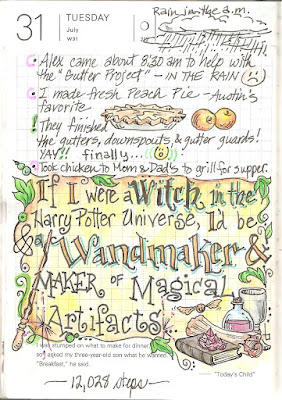 Rain in the a.m.
31 TUESDAY
July
W31
Alex came about 8:30 am to help with
the "Gutter Project" - IN THE RAIN
I made fresh Peach Pie - Austin's
favorite
! They finished
the gutters, downspouts, & gutter guards!
YAY!! finally...
Took chicken to Mom & Dad's to grill for supper.
If I were a Witch in the
Harry Potter Universe, I'd be
a Wandmaker &
MAKER of Magical
Artifacts...
I was stumped on what to make for dinner,
so I asked my three-year-old son what he wanted.
"Breakfast," he said.
"Today's Child"
12,028 steps